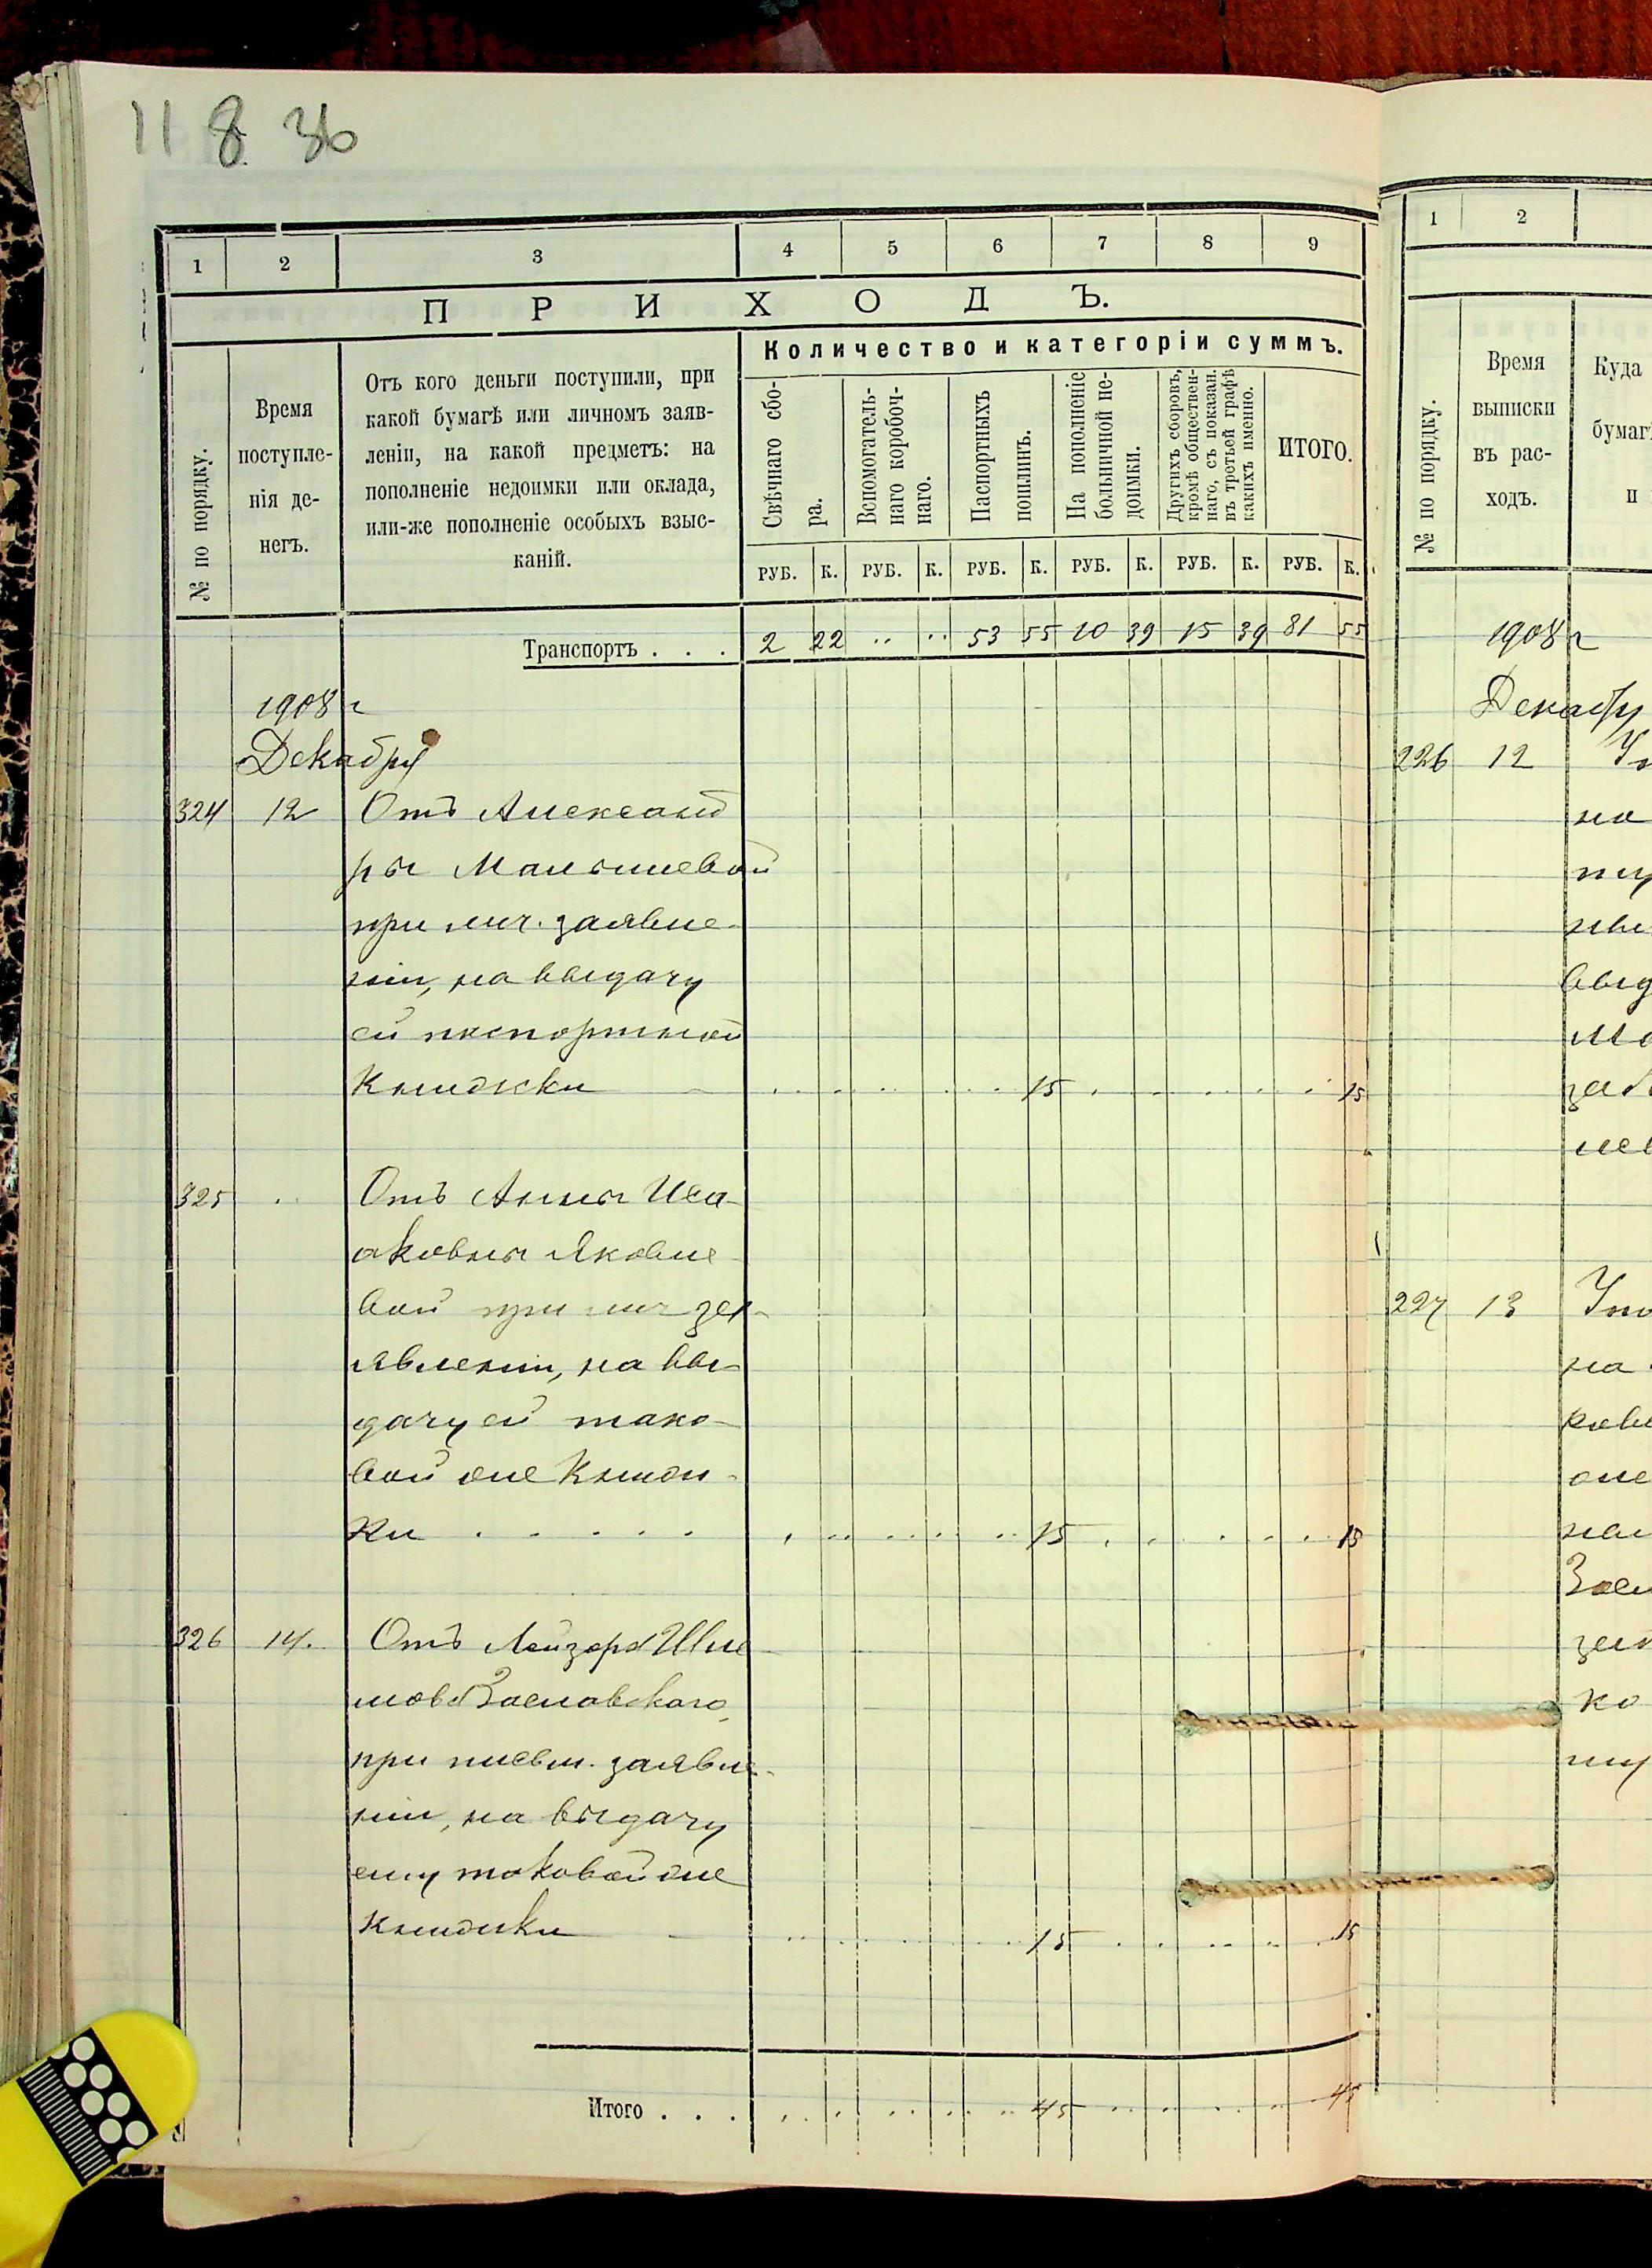 11 8 36
1 2 3 4 5 6 7 8 9
П Р И Х О Д Ъ.
№ по порядку.
Время
поступле-
нія де-
негъ.
Отъ кого деньги поступили, при
какой бумагѣ или личномъ заяв-
леніи, на какой предметъ: на
пополненіе недоимки или оклада,
или-же пополненіе особыхъ взыс-
каній.
Количество и категоріи суммъ.
Свѣчнаго сбо-
ра.
Вспомогатель-
наго коробоч-
наго.
Паспортныхъ
пошлинъ.
На пополненіе
больничной не-
доимки.
Другихъ сборовъ,
кромѣ обществен-
наго, съ показан.
въ третьей графѣ
какихъ именно.
ИТОГО.
РУБ. К. РУБ. К. РУБ. К. РУБ. К. РУБ. К. РУБ. К.
Транспортъ . . . 2 22 .. .. 53 55 10 39 15 39 81 55
1908 г
Декабря
324 12 Отъ Александ
ры Малышевой
при лич. заявле-
ніи, на выдачу
ей паспортной
книжки 15 15
325 .. Отъ Анны Иса-
аковны Яковле
вой при лич за-
явленіи, на вы-
дачу ей тако-
вой же книж-
ки . . . . . 15 15
326 14. Отъ Лейзера Шле
мов. Заславскаго,
при письм. заявле-
ніи, на выдачу
ему таковой же
книжки 15 15
Итого . . . 45 45
1 2
№ по порядку.
Время
выписки
въ рас-
ходъ.
Куда
бумаг
и
1908 г
Декабр
226 12
на
выд
227 13
на
ко